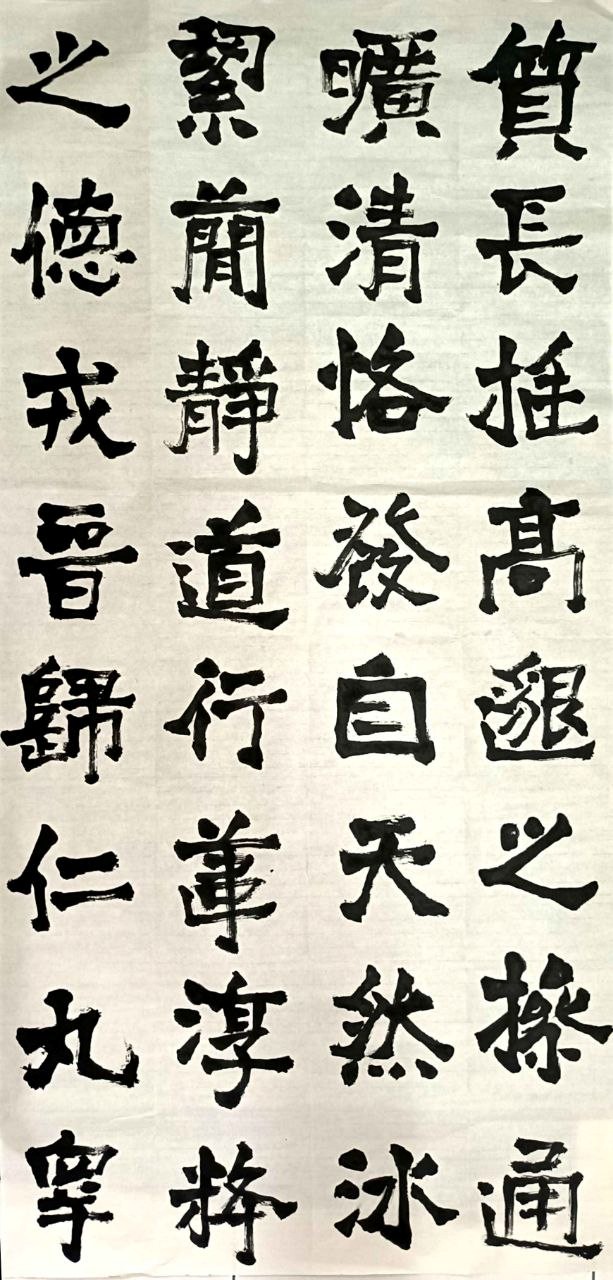 質長挺高邈之操通
曠清恪發自天然冰
絜簡靜道行葦淳粹
之德戎晉歸仁九皋